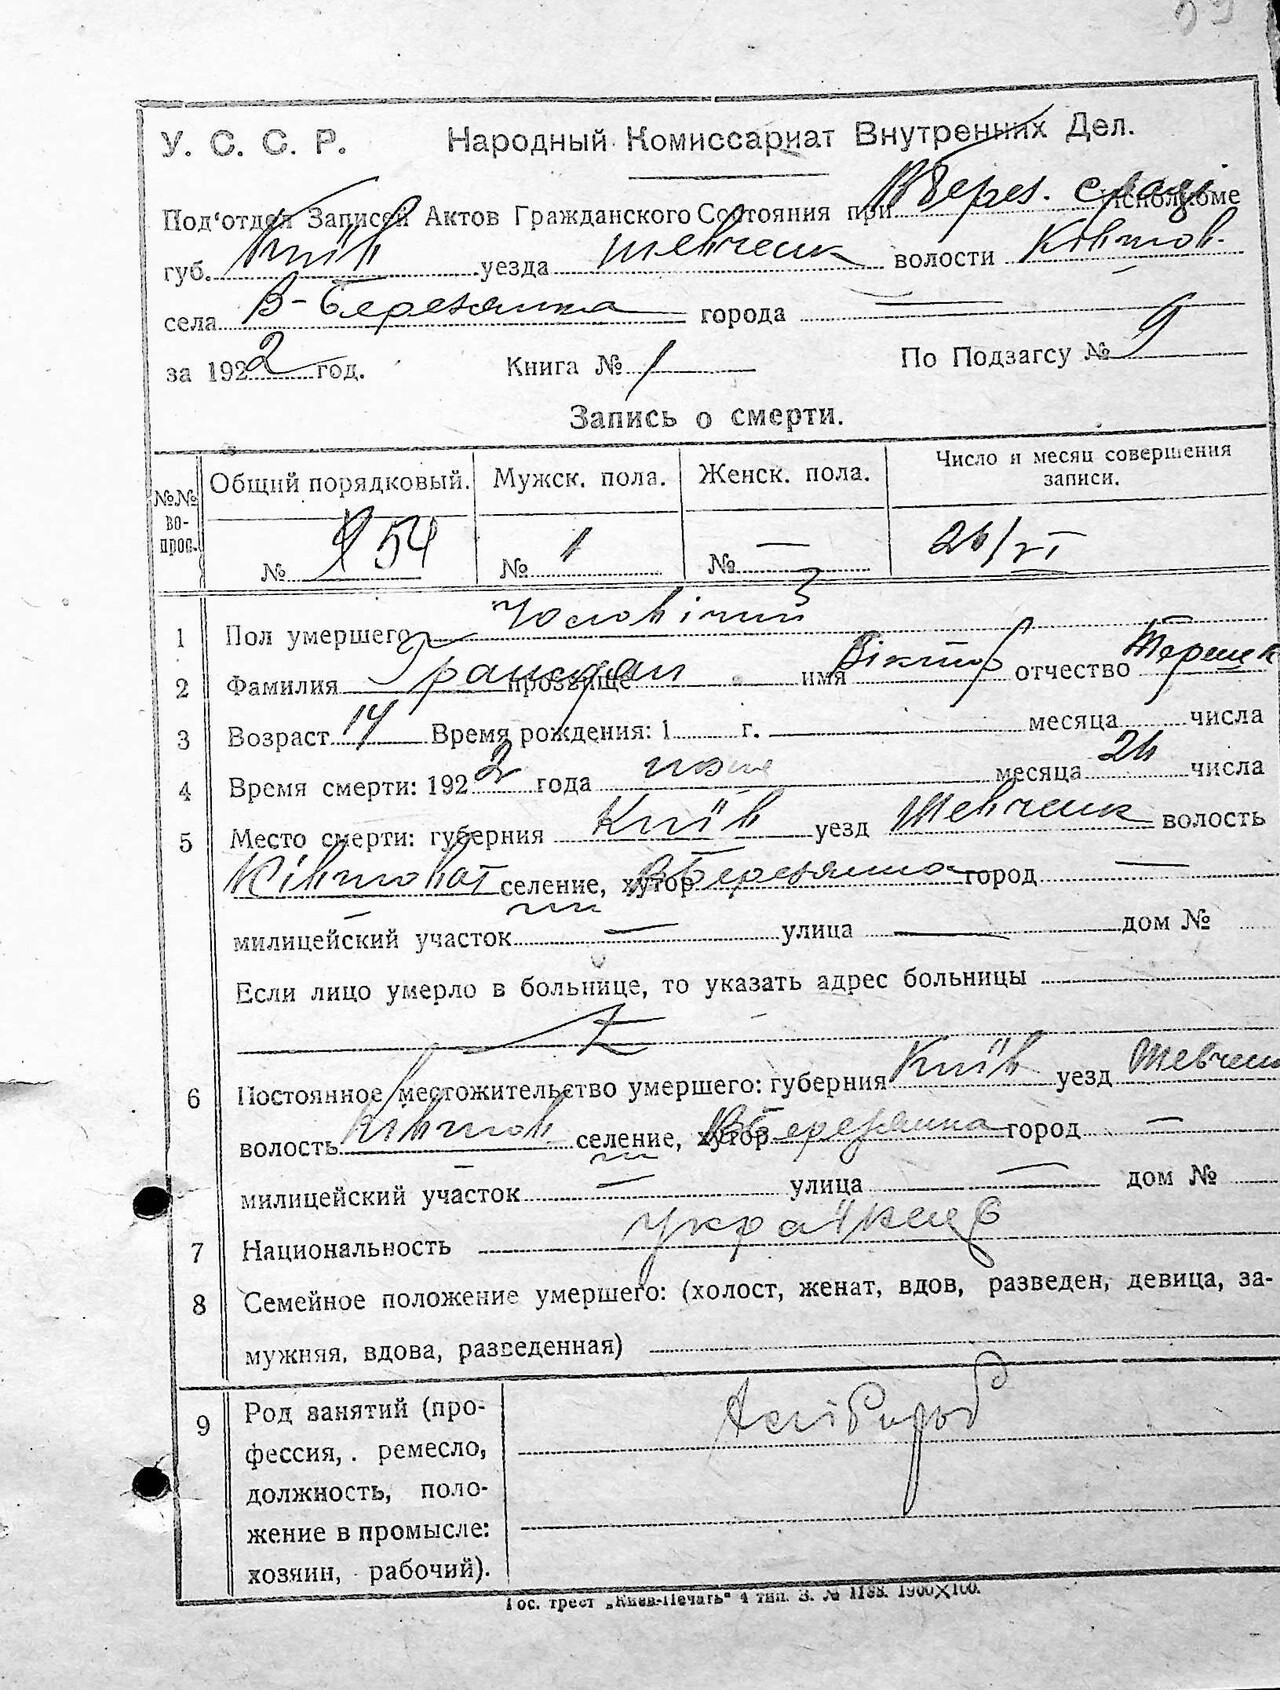 У. С. С. Р. Народный Комиссариат Внутренних Дел.
Под'отдел Записей Актов Гражданского Состояния при В Берез. сраді исполкоме
губ. Київ уезда Шевченк волости Ківшов.
села В-Березянка города —
за 1922 год. Книга № 1 По Подзагсу № 9
Запись о смерти.
№№ вопрос. Общий порядковый. Мужск. пола. Женск. пола. Число и месяц совершения записи.
№ 54 № 1 № — 26/VI
1 Пол умершего Чоловічий
2 Фамилия прозвище имя Віктор отчество
3 Возраст 14 Время рождения: 1 г. месяца числа
4 Время смерти: 1922 года месяца 26 числа
5 Место смерти: губерния Київ уезд Шевченк волость
Ківшоват селение, хутор В Березянка город —
милицейский участок — улица — дом №
Если лицо умерло в больнице, то указать адрес больницы
6 Постоянное местожительство умершего: губерния Київ уезд Шевченк
волость Ківшов селение, хутор В Березянка город —
милицейский участок — улица — дом №
7 Национальность українец
8 Семейное положение умершего: (холост, женат, вдов, разведен, девица, за-
мужняя, вдова, разведенная)
9 Род занятий (про-
фессия, ремесло,
должность, поло-
жение в промысле:
хозяин, рабочий).
Хлібороб
Гос. трест „Киев-Печать" 4 тип. З. № 1188. 1900×100.